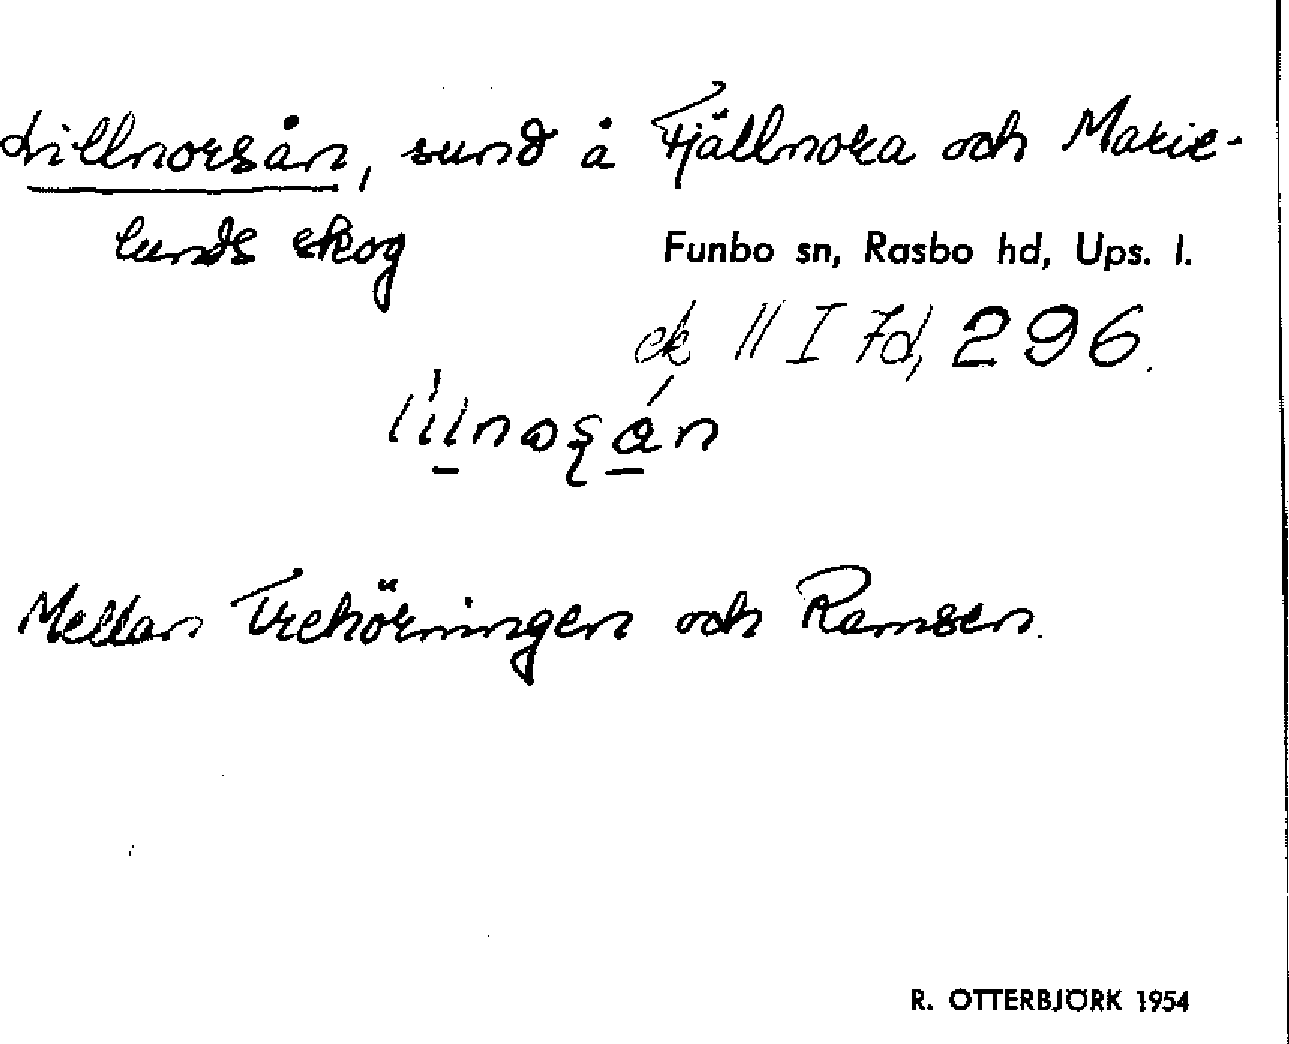 Lillnorsån, sund å Fjällnora och Marie-
lunds skog
Funbo sn, Rasbo hd, Ups. l.
ek 11 I 7d, 296.
Mellan Trehörningen och Ramsen.
R. OTTERBJÖRK 1954